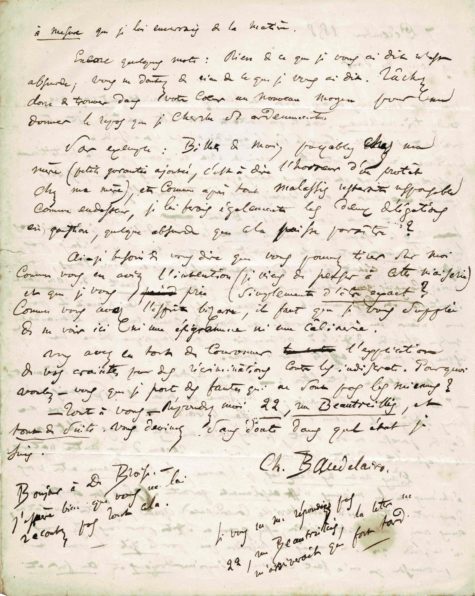 à mesure que je lui enverrais de la matière.
Encore quelques mots : Rien de ce que je vous ai dit n'est
absurde, vous ne doutez de rien de ce que je vous ai dit. Tâchez
donc de trouver dans votre cœur un nouveau moyen pour me
donner le repos que je cherche si ardemment.
Par exemple : Billets de moi, payables chez ma
mère (petite garantie ajoutée, c'est-à-dire l'horreur d'un protêt
chez ma mère), et comme après tout Malassis resterait responsable
comme endosseur, je laisserais également les deux délégations
en question, quelque absurde que cela puisse paraître ?
Ai-je besoin de vous dire que vous pouvez tirer sur moi
comme vous en aviez l'intention (je viens de penser à cette niaiserie)
et que je vous prie (simplement d'être exact ?
Comme vous avez l'esprit bizarre, il faut que je vous supplie
de ne voir ici ni une épigramme ni une calinerie.
Vous avez eu tort de couronner l'application
de vos craintes par des récriminations contre les indiscrets. Pourquoi
voulez-vous que je porte des fautes qui ne sont pas les miennes ?
— Tout à vous — Répondez-moi 22, rue Beautreillis, et
tout de suite. Vous devinez sans doute dans quel état je
suis.
Ch. Baudelaire.
Bonjour à De Broise
J'espère bien que vous ne lui
racontez pas tout cela.
Si vous ne me répondiez pas
22, rue Beautreillis, la lettre ne
m'arriverait que fort tard.